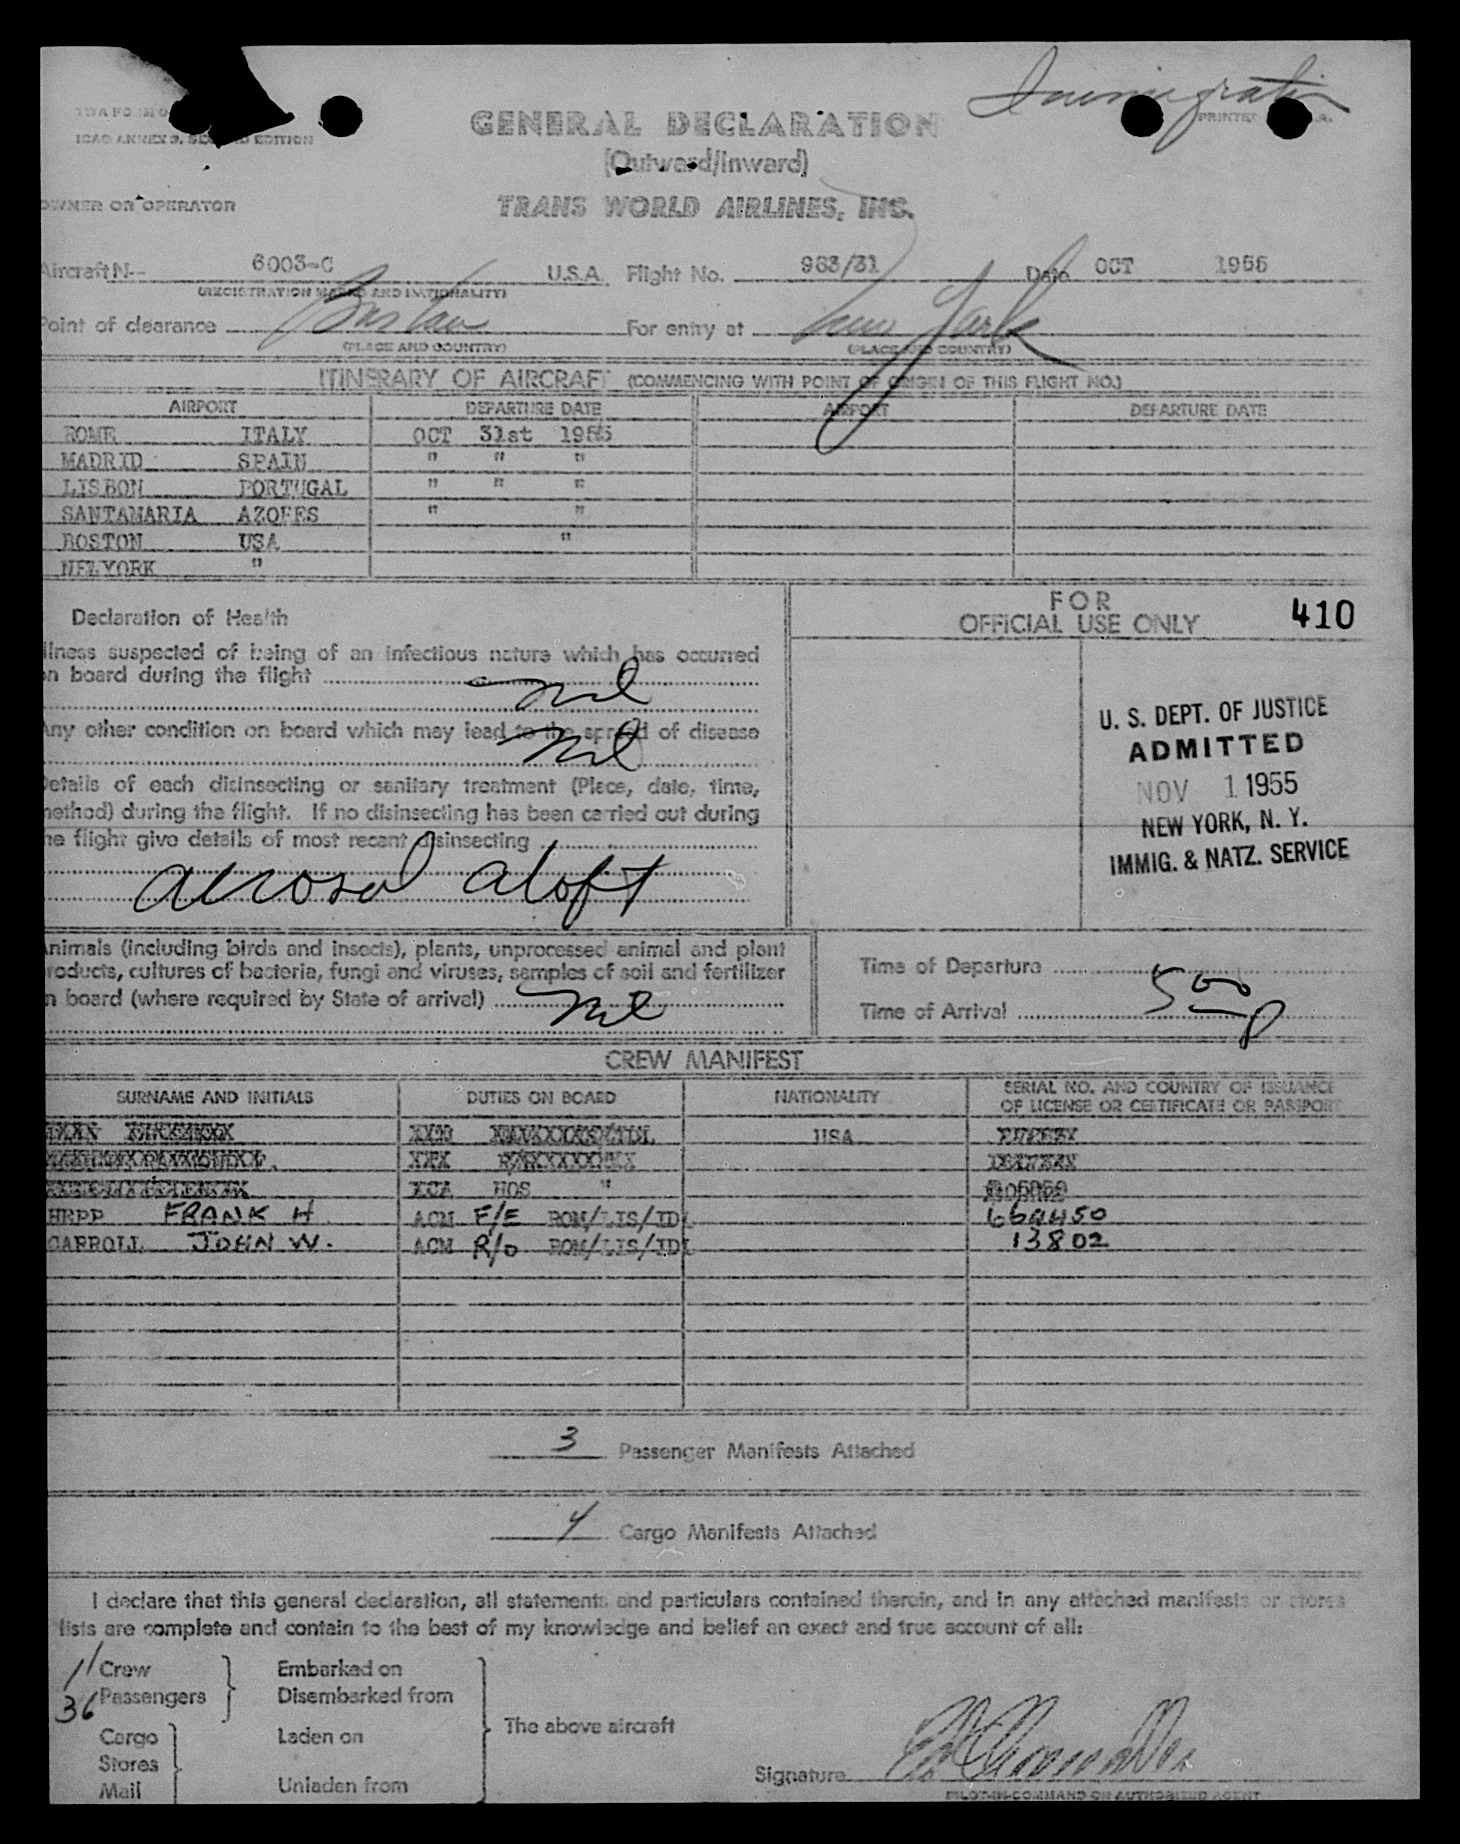 Immigration
TWA FORM O
ICAO ANNEX 9, SECOND EDITION
PRINTED U.S.A.
GENERAL DECLARATION
(Outward/Inward)
OWNER OR OPERATOR
TRANS WORLD AIRLINES, INC.
Aircraft N-- 6003-C U.S.A. Flight No. 963/31 Date OCT 1955
(REGISTRATION MARKS AND NATIONALITY)
Point of clearance Boston For entry at New York
(PLACE AND COUNTRY) (PLACE AND COUNTRY)
ITINERARY OF AIRCRAFT (COMMENCING WITH POINT OF ORIGIN OF THIS FLIGHT NO.)
AIRPORT DEPARTURE DATE AIRPORT DEPARTURE DATE
ROME ITALY OCT 31st 1955
MADRID SPAIN " " "
LISBON PORTUGAL " " "
SANTAMARIA AZORES " "
BOSTON USA "
NEWYORK "
Declaration of Health
FOR
OFFICIAL USE ONLY 410
Illness suspected of being of an infectious nature which has occurred
on board during the flight nil
Any other condition on board which may lead to the spread of disease
nil
Details of each disinsecting or sanitary treatment (Place, date, time,
method) during the flight. If no disinsecting has been carried out during
the flight give details of most recent disinsecting
aerosol aloft
U. S. DEPT. OF JUSTICE
ADMITTED
NOV 1 1955
NEW YORK, N. Y.
IMMIG. & NATZ. SERVICE
Animals (including birds and insects), plants, unprocessed animal and plant
products, cultures of bacteria, fungi and viruses, samples of soil and fertilizer
on board (where required by State of arrival) nil
Time of Departure
Time of Arrival 500p
CREW MANIFEST
SURNAME AND INITIALS DUTIES ON BOARD NATIONALITY SERIAL NO. AND COUNTRY OF ISSUANCE
OF LICENSE OR CERTIFICATE OR PASSPORT
USA
HOS "
HEPP FRANK H ACM F/E ROM/LIS/IDL 669450
CARROLL JOHN W. ACM R/O ROM/LIS/IDL 13802
3 Passenger Manifests Attached
4 Cargo Manifests Attached
I declare that this general declaration, all statements and particulars contained therein, and in any attached manifests or stores
lists are complete and contain to the best of my knowledge and belief an exact and true account of all:
11 Crew Embarked on
36 Passengers Disembarked from
Cargo Laden on
The above aircraft
Stores
Mail Unladen from
Signature
PILOT-IN-COMMAND OR AUTHORIZED AGENT